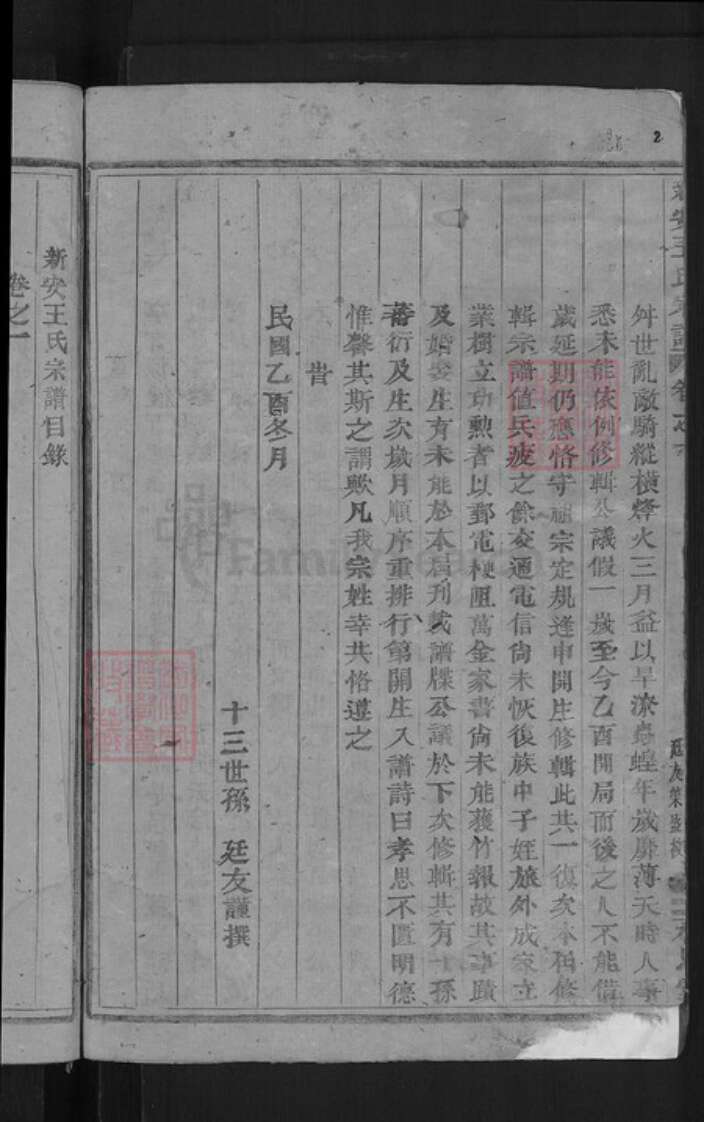 2
新安王氏宗譜
舛世亂敵騎縱橫烽火三月益以旱潦蟲蝗年歲屢薄天時人事
悉未能依例修輯公議假一歲至今乙酉開局而後之人不能借
歲延期仍應恪守祖宗定規逢申開生修輯此其一復次本屆修
輯宗譜值兵疲之餘交通電信尙未恢復族中子姪旅外成家立
業樹立功勲者以郵電梗阻萬金家書尙未能獲竹報故其事蹟
及婚娶生育未能於本屆刊載譜牒公議於下次修輯其有一孫
蕃衍及生次歲月順序重排行第開生入譜詩曰孝思不匱明德
惟馨其斯之謂歟凡我宗姓幸共恪遵之
旹
民國乙酉冬月
十三世孫 廷友謹撰
新安王氏宗譜目錄
卷之一